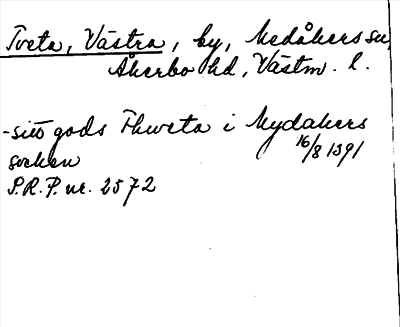 Tveta, Västra, by, Medåkers sn,
Åkerbo hd, Västm. l.
-sitt gods Thweta i Mydakers
socken 16/8 1391
S.R.P. nr. 2572